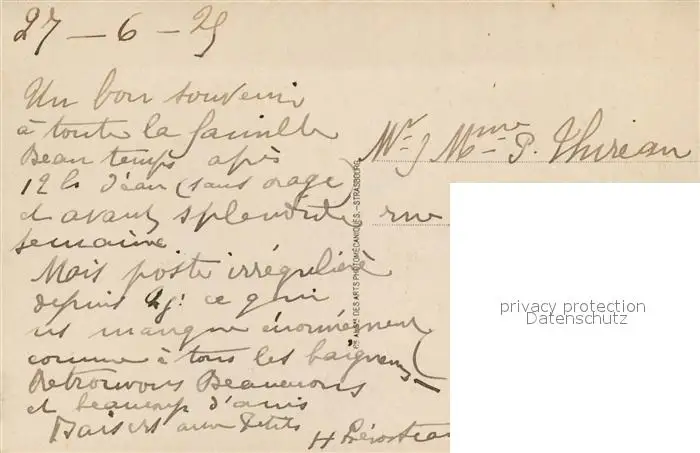 27 – 6 – 25
Un bon souvenir
à toute la famille
Beau temps après
12 h d'eau (sans orage)
et avant splendide
semaine
Mais poste irrégulière
depuis 2j: ce qui
ns manque énormément
comme à tous les baigneurs
Retrouvons
et beaucoup d'amis
Baisers aux Petits
H
Mr & Mme P. Thureau
rue
PAR LES ARTS PHOTOMÉCANIQUES. – STRASBOURG
privacy protection
Datenschutz